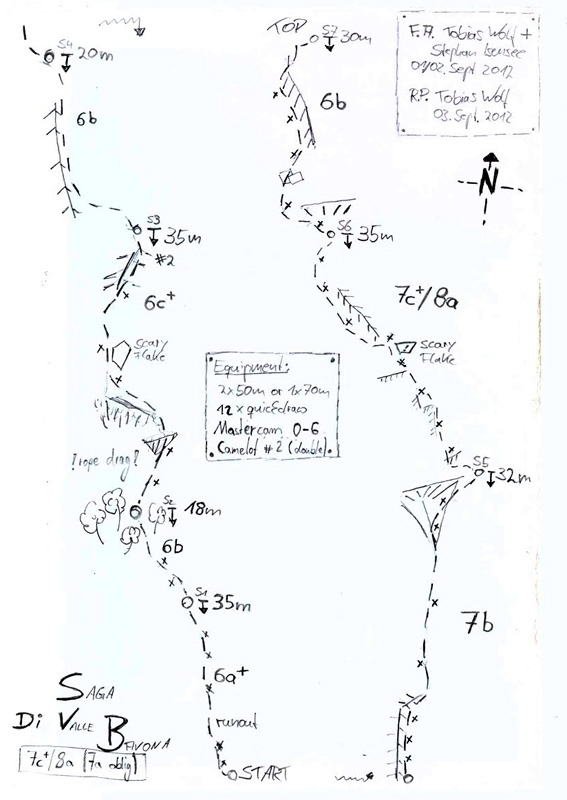 TOP
S7
30m
6b
F.A. Tobias Wolf +
Stephan Isensee
01/02. Sept 2012
R.P. Tobias Wolf
03. Sept. 2012
N
S4
20m
6b
S3
35m
#2
6c+
Scary
Flake
! rope drag !
S2
18m
6b
S1
35m
6a+
runout
START
S6
35m
7c+/8a
Scary
Flake
S5
32m
7b
Equipment:
2x50m or 1x70m
12 x quickdraws
Mastercam 0-6
Camelot #2 (double)
SAGA
Di VALLE BIVONA
7c+/8a (7a oblig)